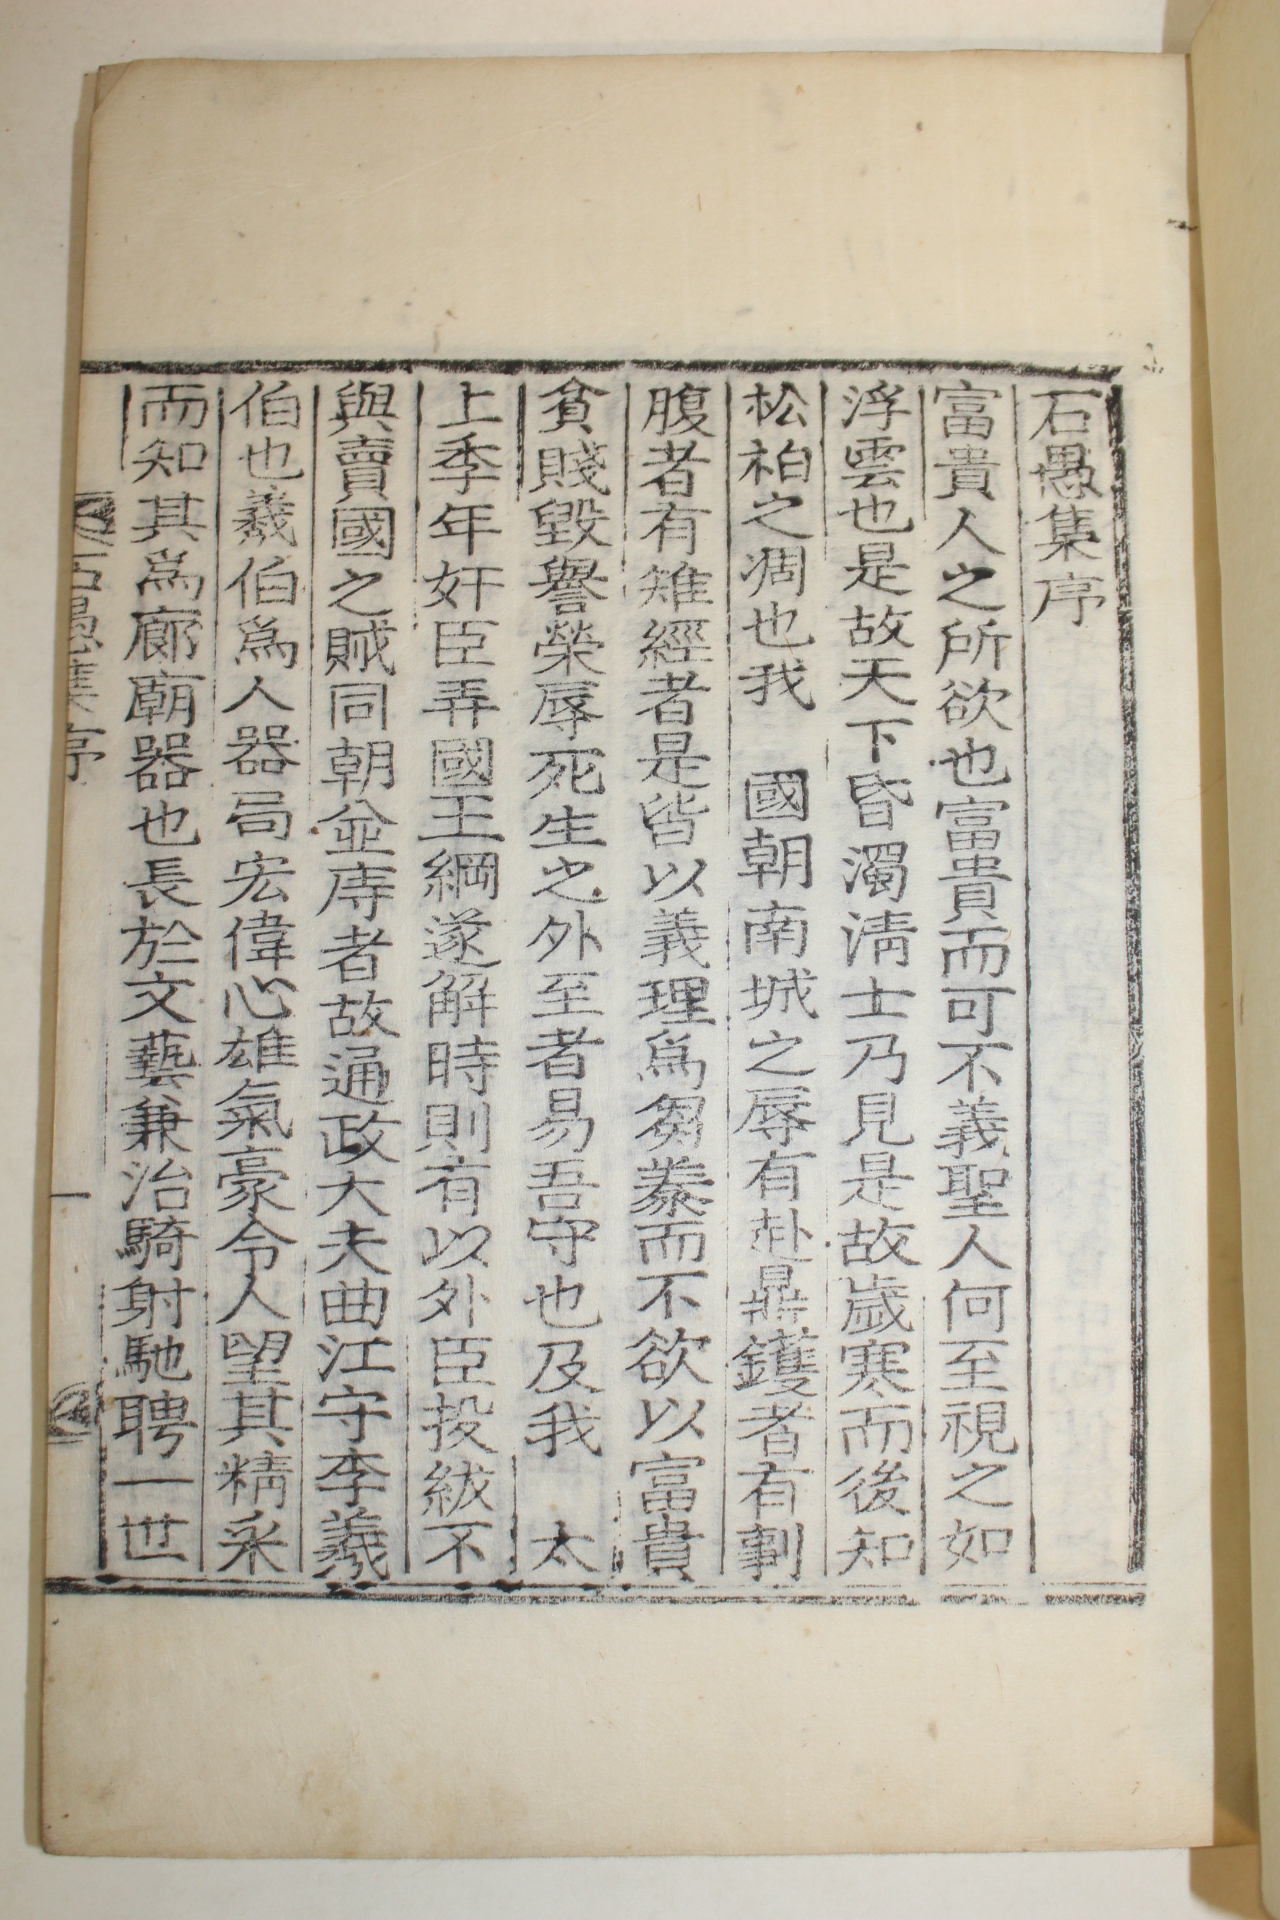 石愚集序
富貴人之所欲也富貴而可不義聖人何至視之如
浮雲也是故天下昏濁淸士乃見是故歲寒而後知
松柏之凋也我 國朝南城之辱有赴鼎鑊者有剚
腹者有雉經者是皆以義理爲芻豢而不欲以富貴
貧賤毁譽榮辱死生之外至者易吾守也及我 太
上季年奸臣弄國王綱遂解時則有以外臣投紱不
與賣國之賊同朝並庤者故通政大夫曲江守李羲
伯也羲伯爲人器局宏偉心雄氣豪令人望其精采
而知其爲廊廟器也長於文藝兼治騎射馳聘一世
石愚集序
一